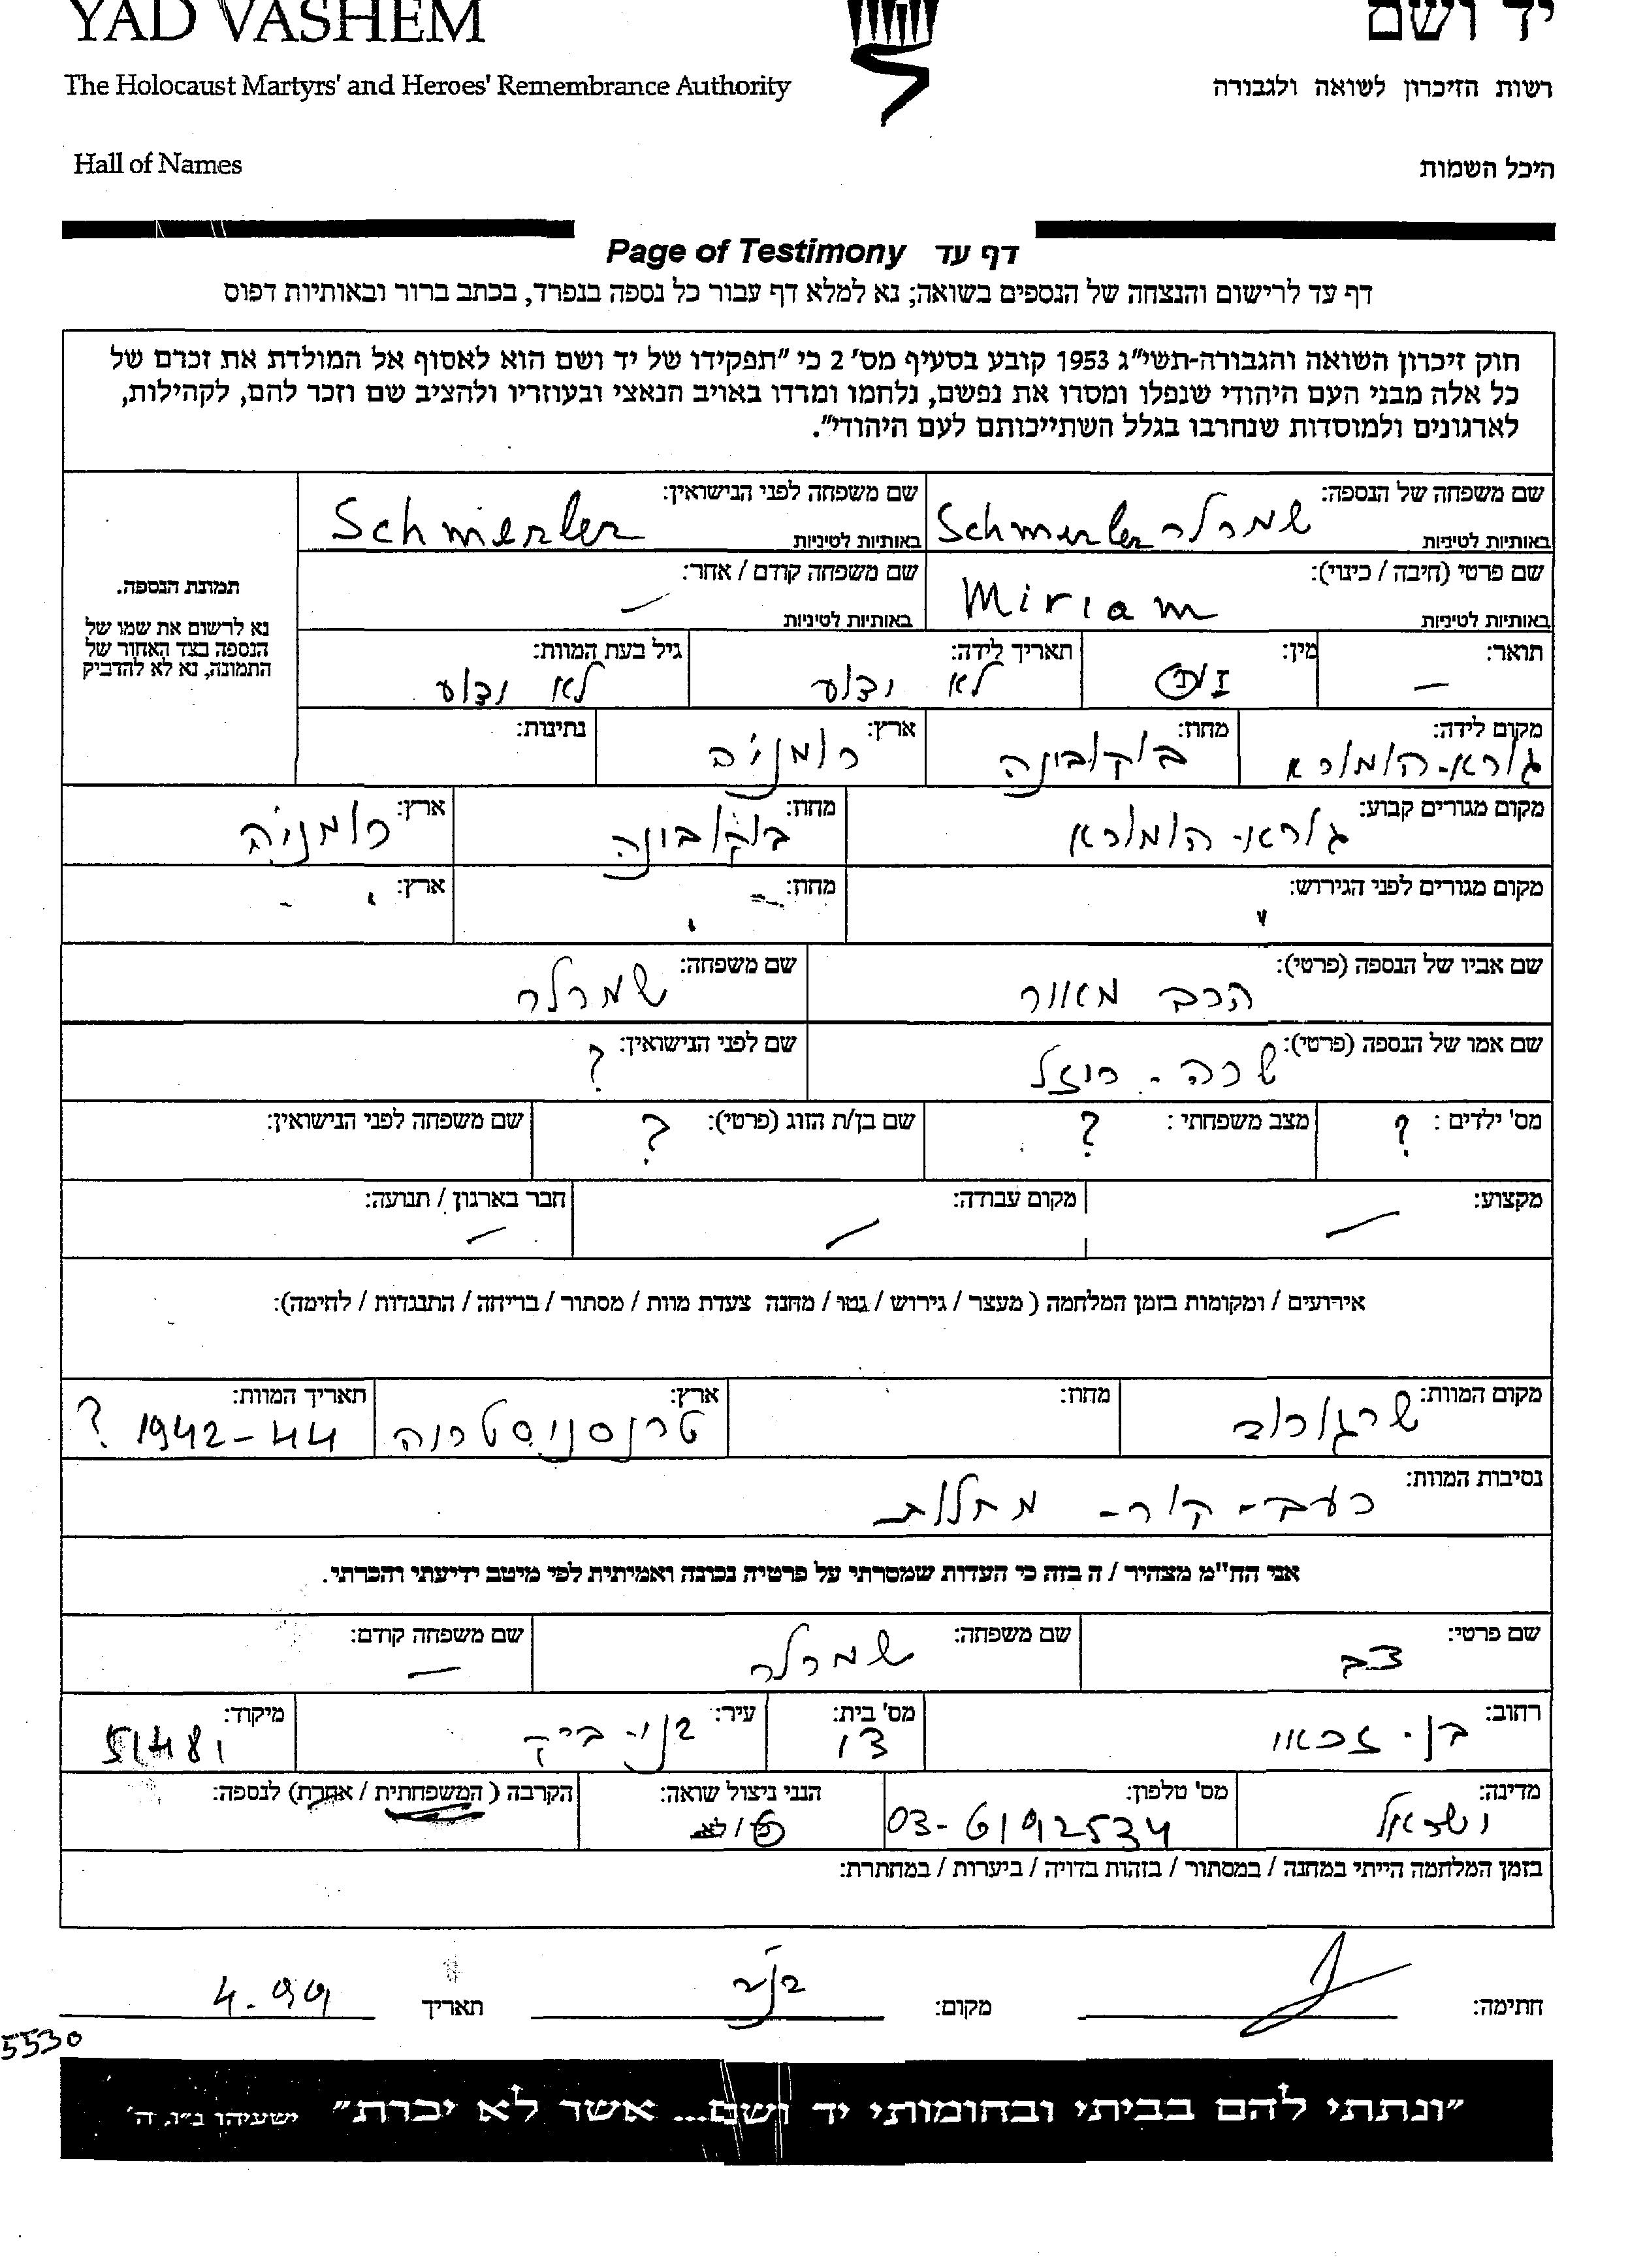 YAD VASHEM
יד ושם
The Holocaust Martyrs' and Heroes' Remembrance Authority
רשות הזיכרון לשואה ולגבורה
Hall of Names
היכל השמות
Page of Testimony דף עד
דף עד לרישום והנצחה של הנספים בשואה; נא למלא דף עבור כל נספה בנפרד, בכתב ברור ובאותיות דפוס
חוק זיכרון השואה והגבורה-תשי"ג 1953 קובע בסעיף מס' 2 כי "תפקידו של יד ושם הוא לאסוף אל המולדת את זכרם של
כל אלה מבני העם היהודי שנפלו ומסרו את נפשם, נלחמו ומרדו באויב הנאצי ובעוזריו ולהציב שם וזכר להם, לקהילות,
לארגונים ולמוסדות שנחרבו בגלל השתייכותם לעם היהודי".
שם משפחה של הנספה: שמרלר Schmerler באותיות לטיניות
שם משפחה לפני הנישואין: Schmerler באותיות לטיניות
שם פרטי (חיבה / כינוי): Miriam באותיות לטיניות
שם משפחה קודם / אחר: — באותיות לטיניות
תמונת הנספה.
נא לרשום את שמו של
הנספה בצד האחור של
התמונה, נא לא להדביק
תואר: — מין: ז / נ תאריך לידה: לא ידוע גיל בעת המוות: לא ידוע
מקום לידה: גורא-הומורא מחוז: בוקובינה ארץ: רומניה נתינות:
מקום מגורים קבוע: גורא-הומורא מחוז: בוקובינה ארץ: רומניה
מקום מגורים לפני הגירוש: " מחוז: - " ארץ: " -
שם אביו של הנספה (פרטי): הרב מאיר שם משפחה: שמרלר
שם אמו של הנספה (פרטי): שרה - רוזל שם לפני הנישואין: ?
מס' ילדים : ? מצב משפחתי : ? שם בן/ת הזוג (פרטי): ? שם משפחה לפני הנישואין:
מקצוע: — מקום עבודה: — חבר בארגון / תנועה: —
אירועים / ומקומות בזמן המלחמה ( מעצר / גירוש / גטו / מחנה צעדת מוות / מסתור / בריחה / התנגדות / לחימה):
מקום המוות: שרגורוב מחוז: ארץ: טרנסניסטריה תאריך המוות: 1942-44 ?
נסיבות המוות: רעב - קור - מחלות
אני הח"מ מצהיר / ה בזה כי העדות שמסרתי על פרטיה נכונה ואמיתית לפי מיטב ידיעתי והכרתי.
שם פרטי: צבי שם משפחה: שמרלר שם משפחה קודם: —
רחוב: בן-זכאי מס' בית: 13 עיר: בני-ברק מיקוד: 51481
מדינה: ישראל מס' טלפון: 03-6192534 הנני ניצול שואה: כן / לא הקרבה ( המשפחתית / אחרת) לנספה:
בזמן המלחמה הייתי במחנה / במסתור / בזהות בדויה / ביערות / במחתרת:
חתימה: מקום: ב"ב תאריך 4.99
5530
"ונתתי להם בביתי ובחומותי יד ושם... אשר לא יכרת" ישעיהו נ"ו, ה'